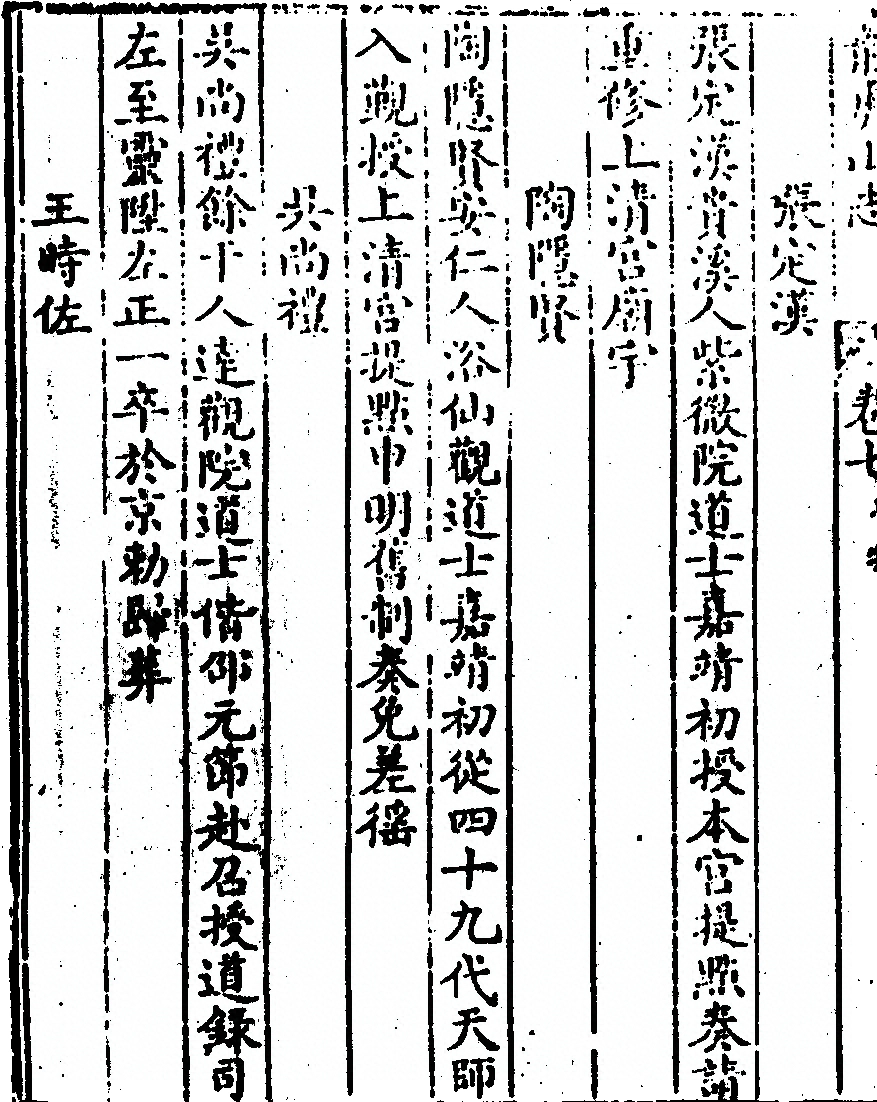 龍虎山志 卷七
張定漢
張定漢貴溪人紫微院道士嘉靖初授本宮提點奏請
重修上清宮廟宇
陶隱賢
陶隱賢安仁人浴仙觀道士嘉靖初從四十九代天師
入覲授上清宮提點申明舊制奏免差徭
吳尚禮
吳尚禮餘干人達觀院道士偕邵元節赴召授道錄司
左至靈陞左正一卒於京勅歸葬
王時佐